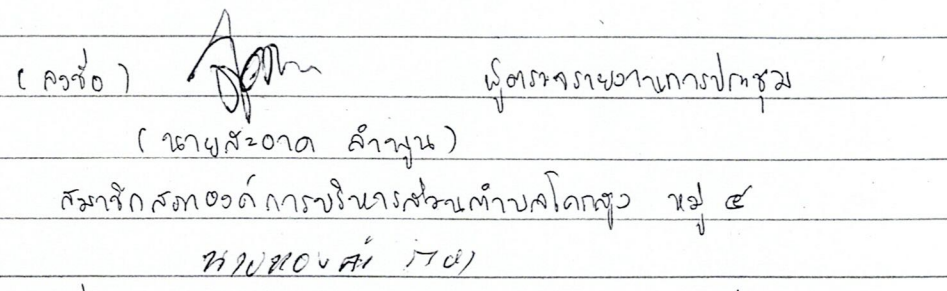 (ลงชื่อ) ผู้ตรวจรายงานการประชุม
(นายสะอาด ลำพูน)
สมาชิกสภาองค์การบริหารส่วนตำบลโคกสูง หมู่ ๔
นายทองคำ